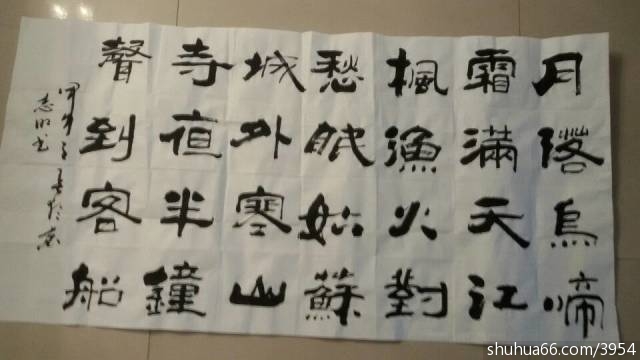 月落烏啼
霜滿天江
楓漁火對
愁眠姑蘇
城外寒山
寺夜半鐘
聲到客船
甲午
志明书
shuhua66.com/3954